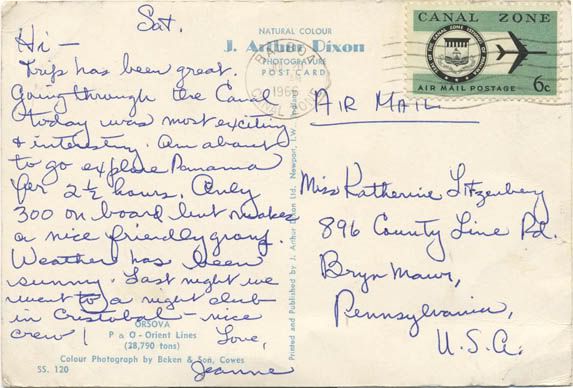 Sat.
NATURAL COLOUR
J. Arthur Dixon
PHOTOGRAVURE
POST CARD
CANAL ZONE
AIR MAIL POSTAGE
6c
1966
Hi -
Trip has been great.
Going through the Canal
today was most exciting
& interesting. Am about
to go explore Panama
for 2½ hours. Only
300 on board but makes
a nice friendly group.
Weather has been
sunny. Last night we
went to a night club
in Cristobal - nice
crew! Love,
Jeanne
AIR MAIL
Miss Katherine Litzenberg
896 County Line Rd.
Bryn Mawr,
Pennsylvania,
U.S.A.
Printed and Published by J. Arthur Dixon Ltd. Newport, I.W.
ORSOVA
P & O - Orient Lines
(28,790 tons)
Colour Photograph by Beken & Son, Cowes
SS. 120